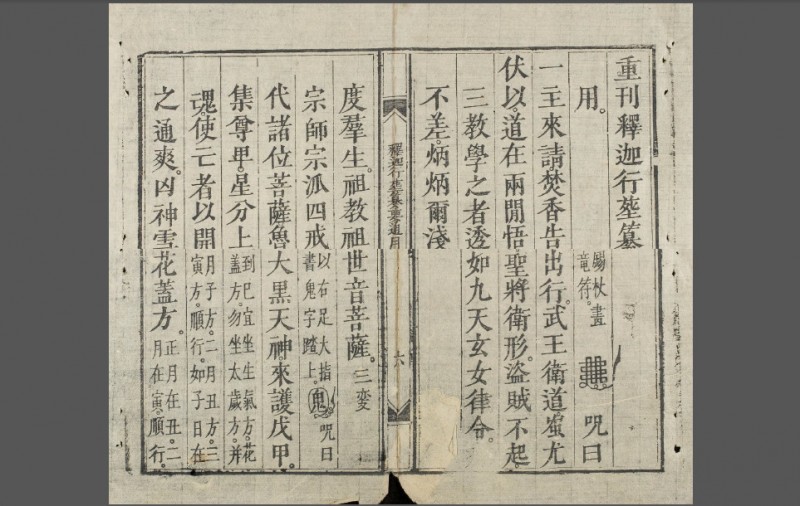 重刊釋迦行塟纂
用。錫杖畫竜符。咒曰
一主來請焚香告出行。武王衛道蚩尤
伏以。道在兩閒悟聖將衛形。盜賊不起。
三教學之者透如九天玄女律令。
不差。炳炳爾淺
釋迦行塟纂要通用 六
度羣生。祖教祖世音菩薩。三変
宗師宗派四戒以右足大指書鬼字踏上。鬼 咒曰
代諸位菩薩魯大黑天神。來護戊甲。
集尊甲。星分上到巳宜坐生氣方。花盖方。勿坐太歲方。并
魂。使亡者以開月子方。二月丑方。三寅方。順行。如子日在
之通爽。凶神雪花蓋方。正月在丑。二月在寅。順行。